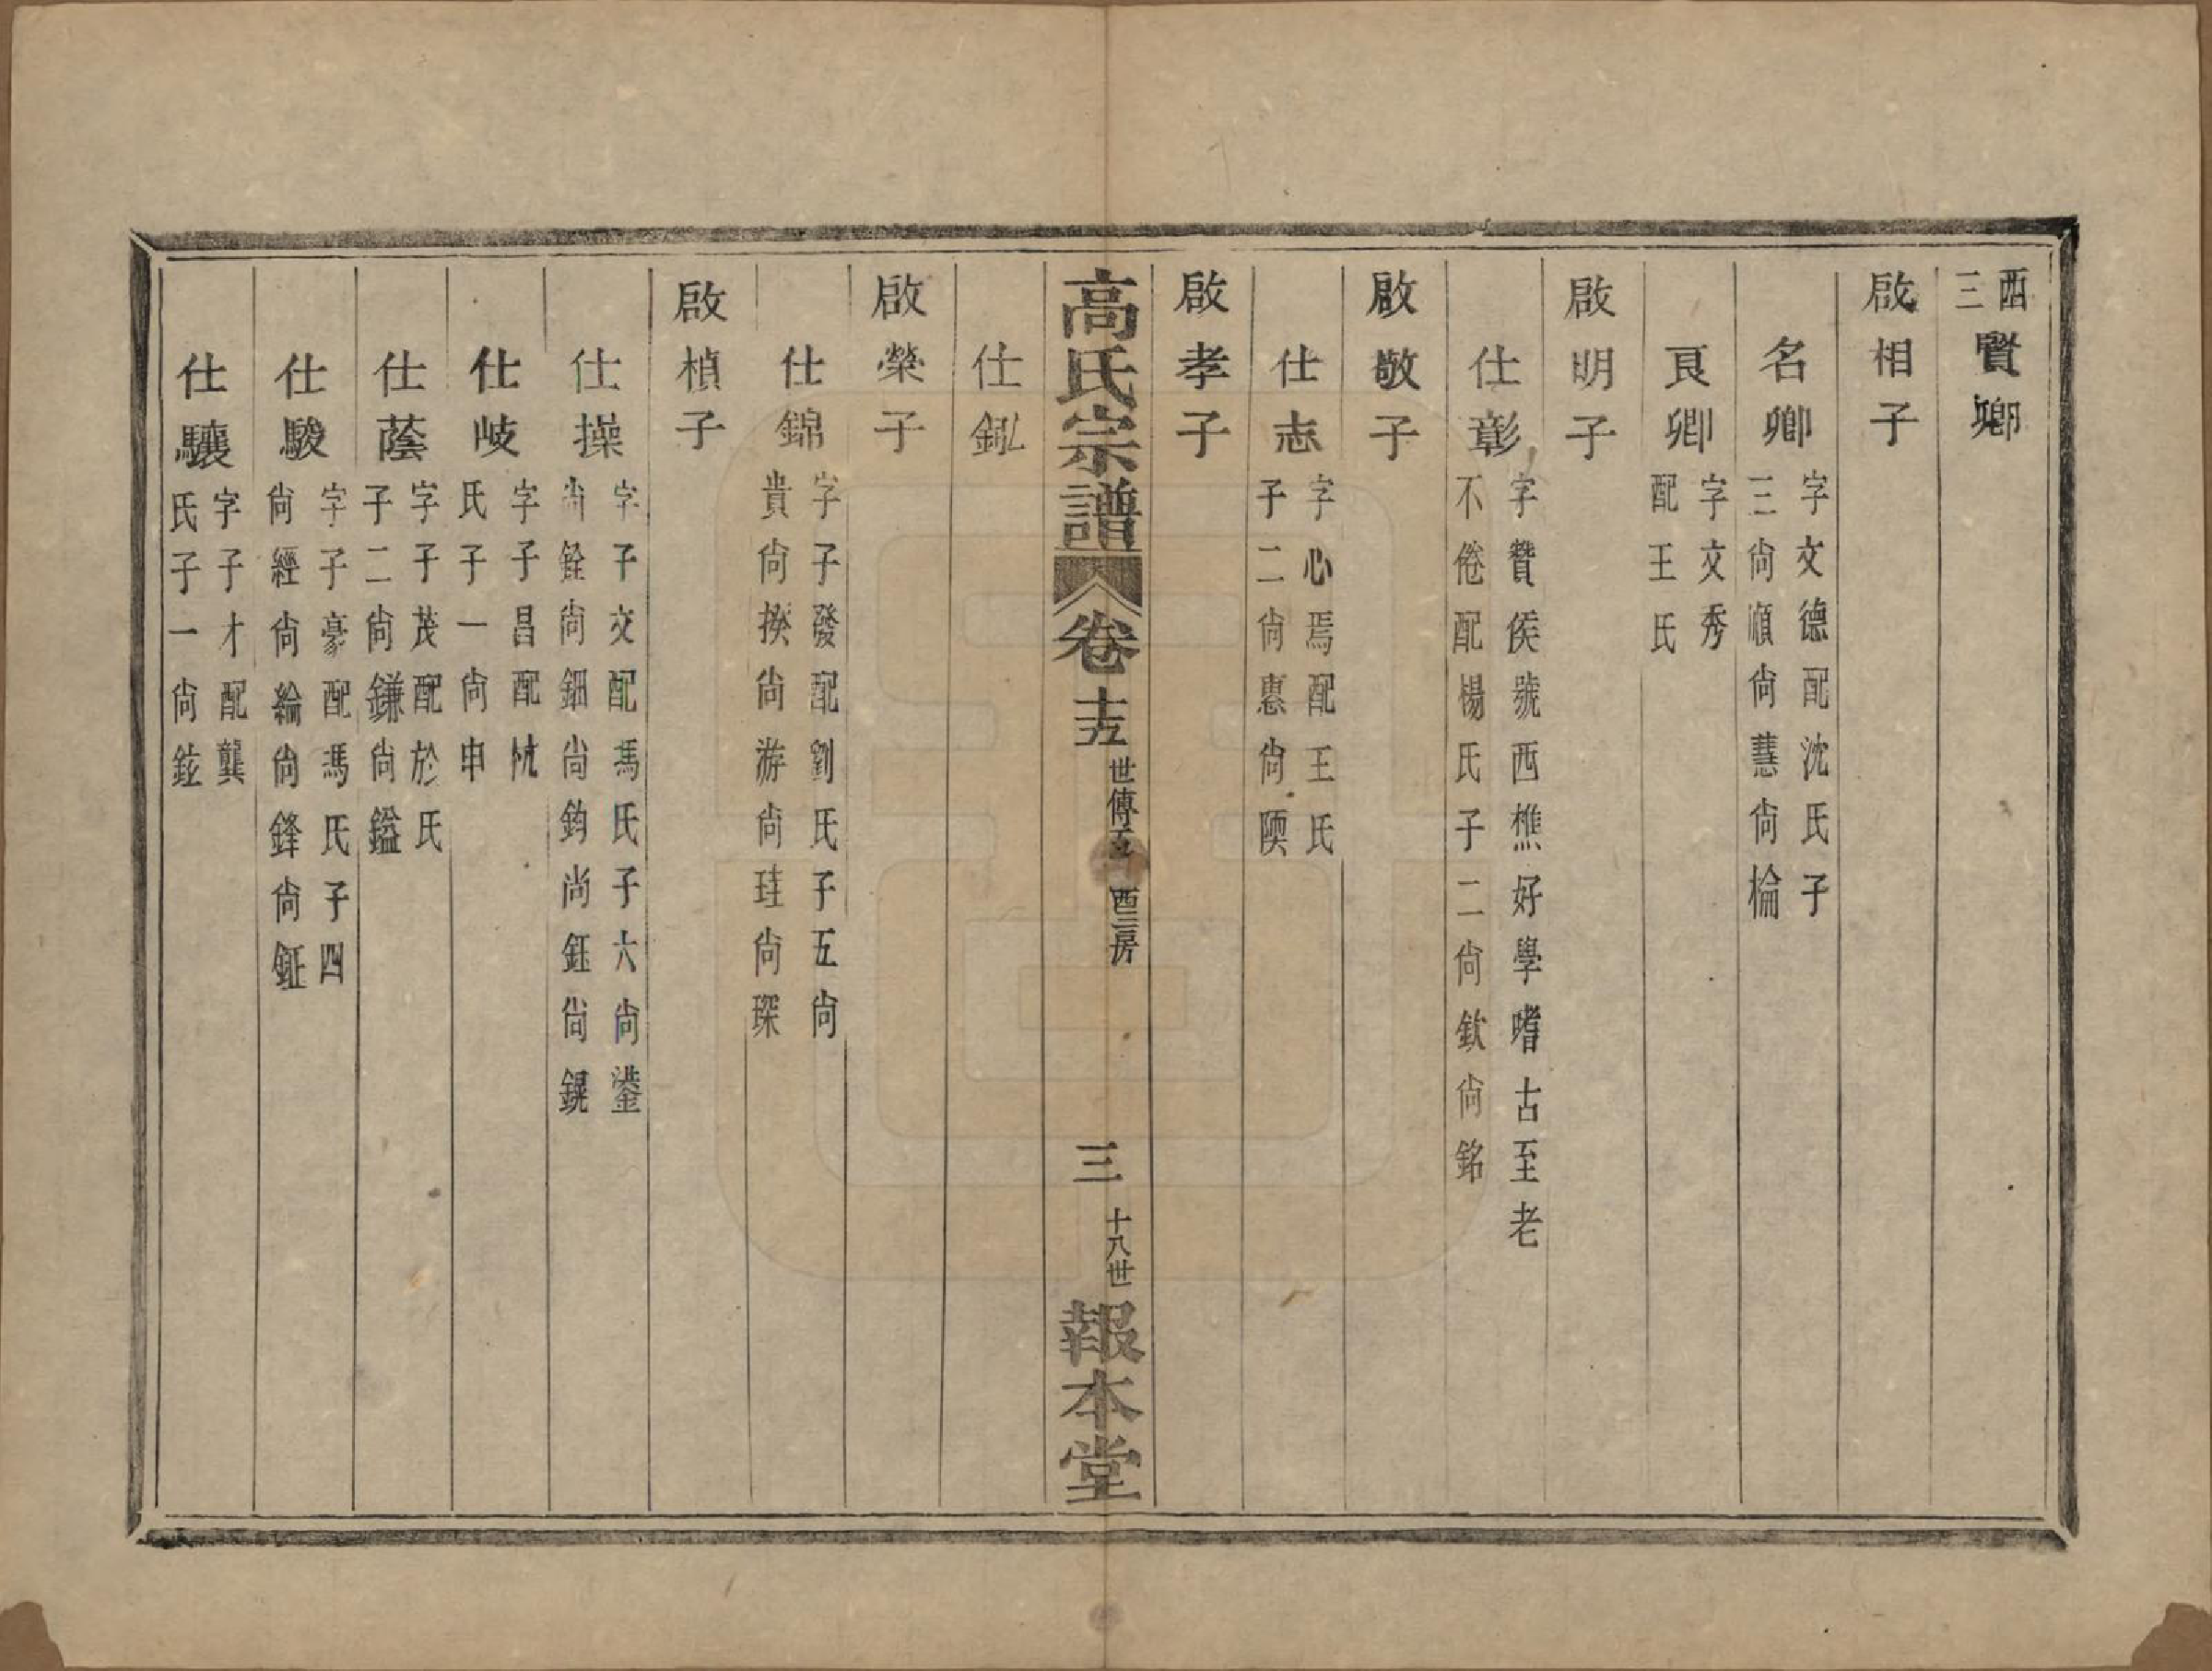 酉三 賢卿
啟相子
名卿 字文德配沈氏子三尙順尙慧尙棆
良卿 字文秀配王氏
啟明子
仕彰 字贊侯號西樵好學嗜古至老不倦配楊氏子二尙欽尙銘
啟敬子
仕志 字心焉配王氏子二尙惠尙陾
啟孝子
高氏宗譜 卷十五 世傳五 酉三房 三 十八世 報本堂
仕釟
啟榮子
仕錦 字子發配劉氏子五尙貴尙揆尙游尙珪尙琛
啟楨子
仕操 字子文配馮氏子六尙鎏尙銓尙鈿尙鈞尙鈺尙鎤
仕岐 字子昌配忱氏子一尙申
仕蔭 字子茂配於氏子二尙鎌尙鎰
仕駿 字子豪配馮氏子四尙經尙綸尙鋒尙鉦
仕驤 字子才配龔氏子一尙鉉